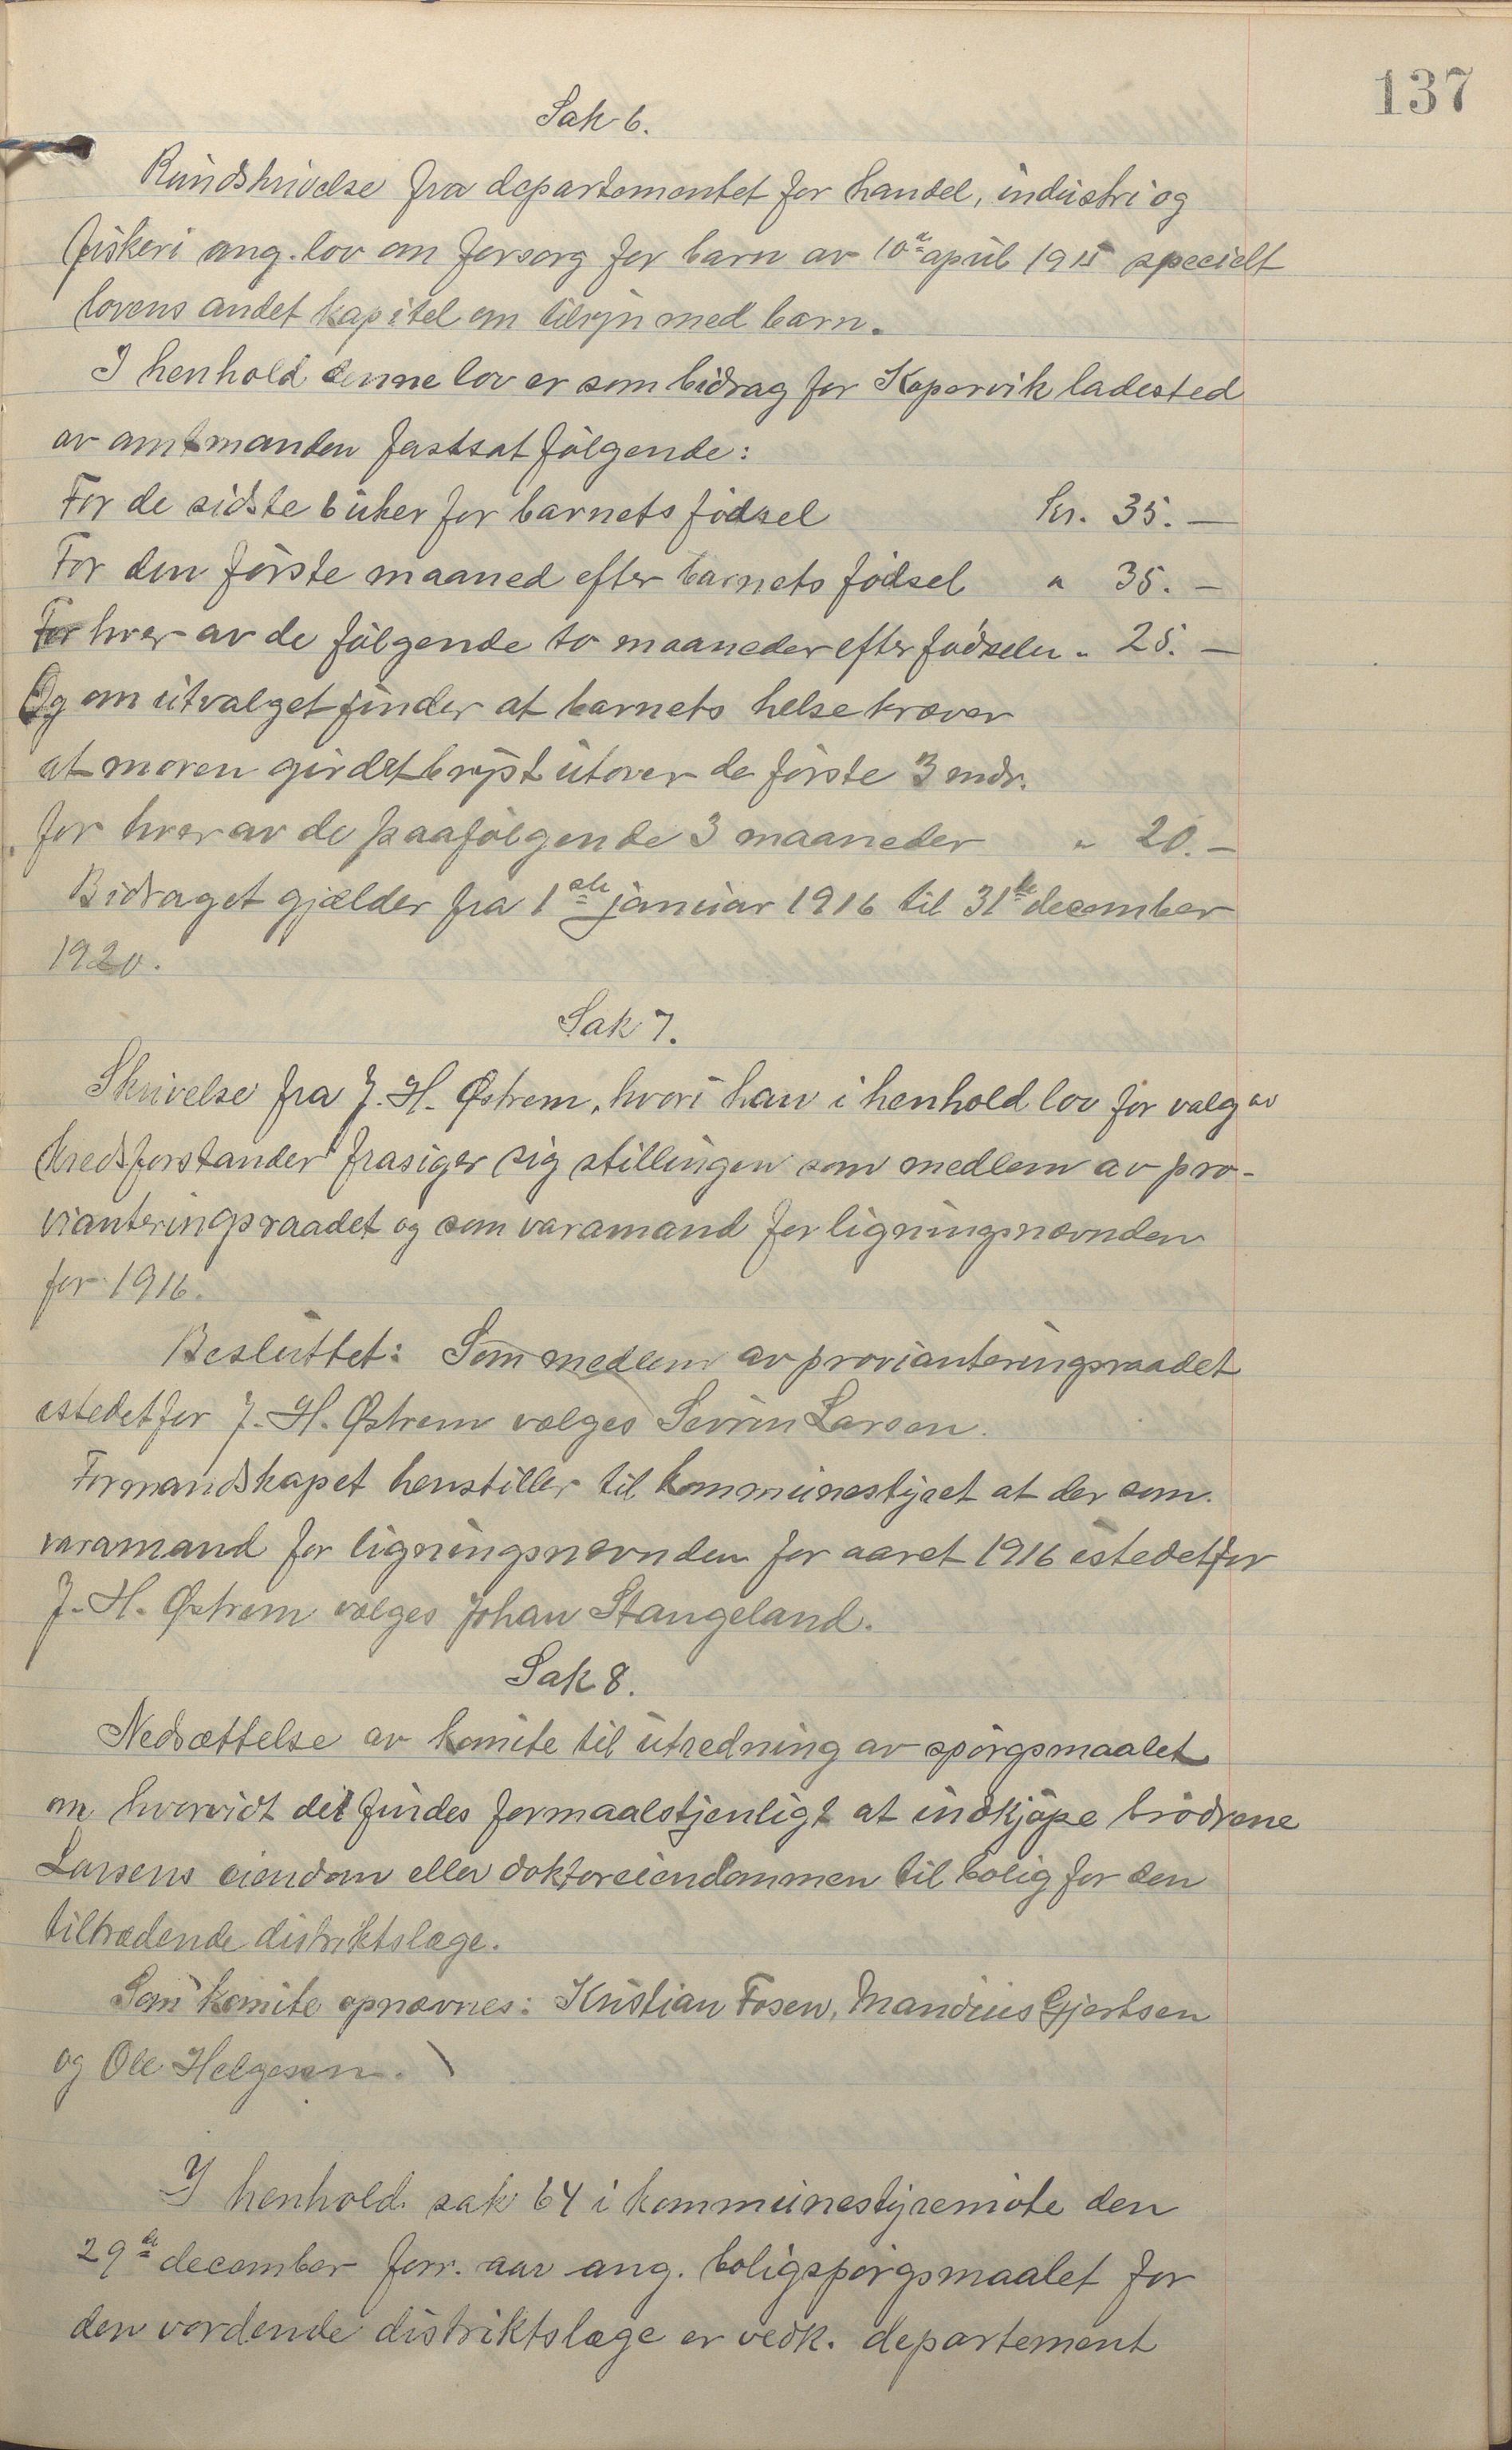 137
Sak 6.
Rundskrivelse fra departementet for handel, industri og
fiskeri ang. lov om forsorg for barn av 10de april 1915 specielt
lovens andet kapitel om tilsyn med barn.
I henhold denne lov er som bidrag for Kopervik ladested
av amtmanden fastsat følgende:
For de sidste 6 uker før barnets fødsel kr. 35. —
For den første maaned efter barnets fødsel " 35. —
For hver av de følgende to maaneder efter fødselen " 25. —
Og om utvalget finder at barnets helse kræver
at moren gir det bryst utover de første 3 mdr.
for hver av de paafølgende 3 maaneder " 20. —
Bidraget gjælder fra 1ste januar 1916 til 31te december
1920.
Sak 7.
Skrivelse fra J. H. Østrem, hvori han i henhold lov for valg av
kredsforstander frasiger sig stillingen som medlem av pro-
vianteringsraadet og som varamand for ligningsnævnden
for 1916.
Besluttet: Som medlem av provianteringsraadet
istedetfor J. H. Østrem vælges Sevrin Larsen.
Formandskapet henstiller til kommunestyret at der som
varamand for ligningsnævnden for aaret 1916 istedetfor
J. H. Østrem vælges Johan Stangeland.
Sak 8.
Nedsættelse av komite til utredning av spørgsmaalet
om hvorvidt det findes formaalstjenligt at indkjøpe brødrene
Larsens eiendom eller doktoreiendommen til bolig for den
tiltrædende distriktslæge.
Som komite opnævnes: Kristian Fosen, Mandius Gjertsen
og Ole Helgesen.
I henhold sak 64 i kommunestyremøte den
29de december forr. aar ang. boligspørgsmaalet for
den vordende distriktslæge er vedk. departement